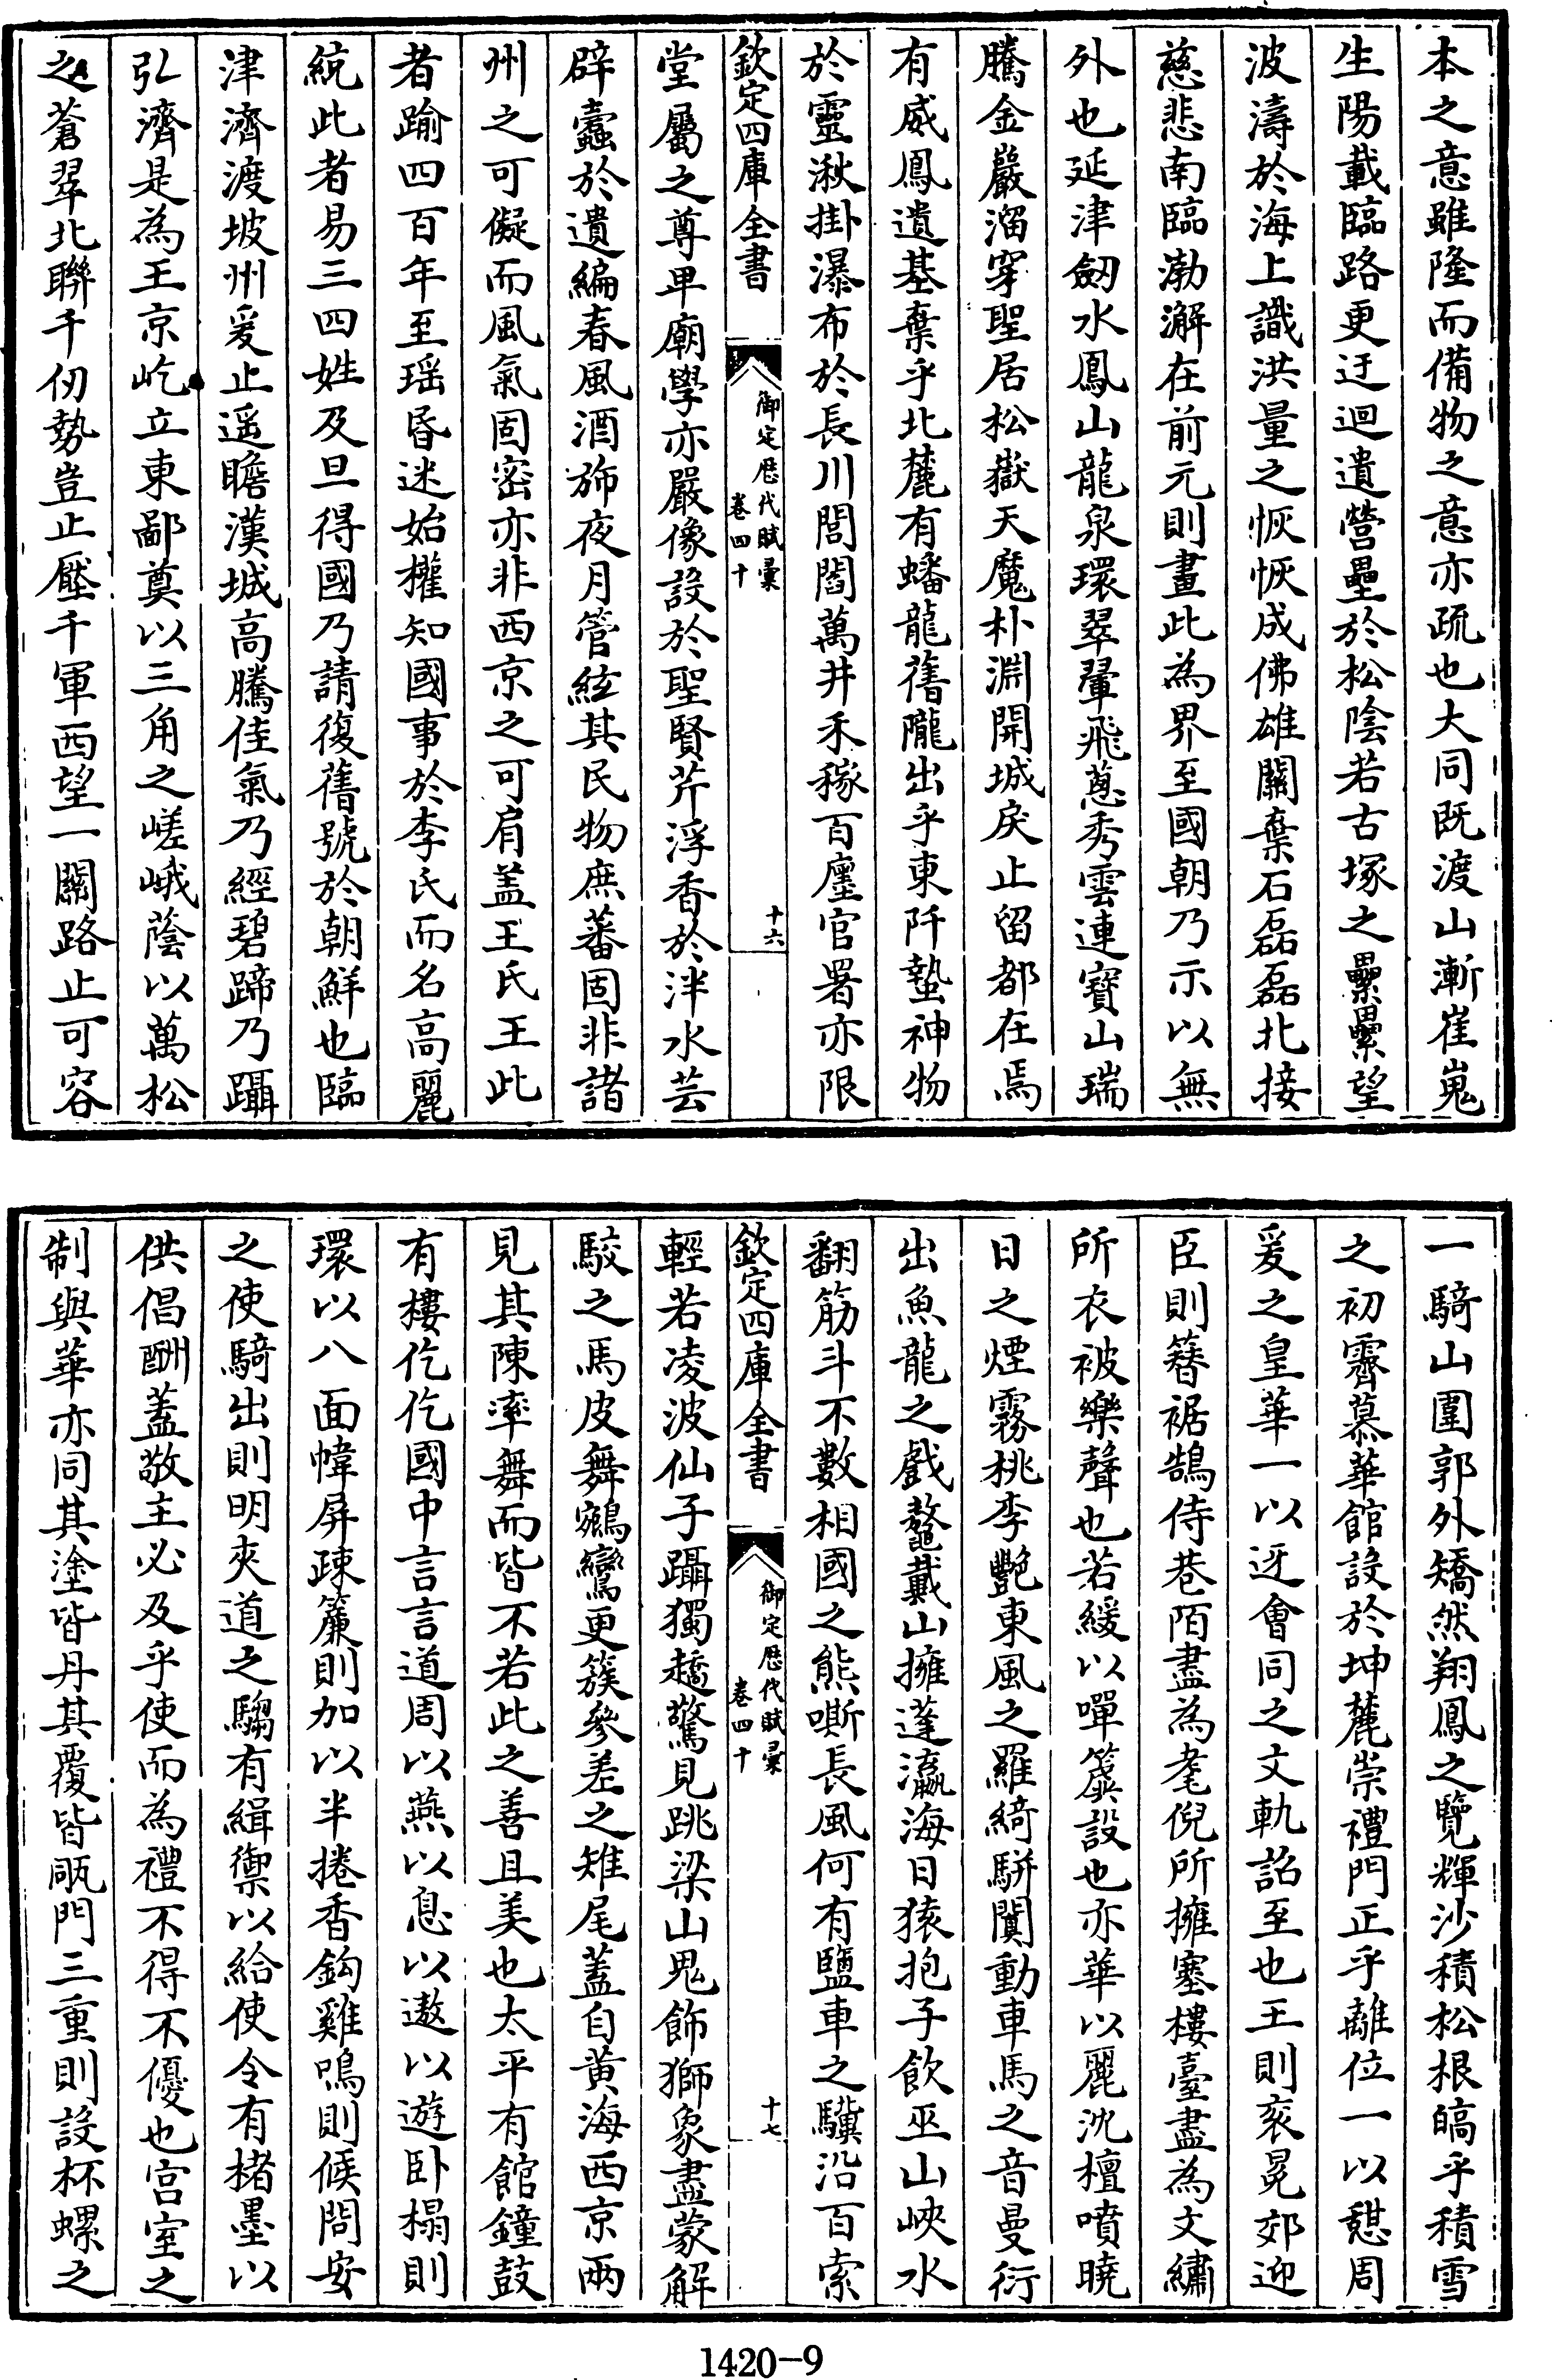 本之意雖隆而備物之意亦疏也大同既渡山漸崔嵬
生陽載臨路更迂迴遺營壘於松陰若古塚之纍纍望
波濤於海上識洪量之恢恢成佛雄關棄石磊磊北接
慈悲南臨渤澥在前元則畫此為界至國朝乃示以無
外也延津劒水鳳山龍泉環翠翬飛蔥秀雲連寶山瑞
騰金巖溜穿聖居松嶽天魔朴淵開城戾止留都在焉
有威鳳遺基棄乎北麓有蟠龍舊隴出乎東阡蟄神物
於靈湫掛瀑布於長川閭閻萬井禾稼百廛官署亦限
欽定四庫全書
御定歷代賦彙
卷四十
十六
堂屬之尊卑廟學亦嚴像設於聖賢芹浮香於泮水芸
辟蠹於遺編春風酒斾夜月管絃其民物庶蕃固非諸
州之可儗而風氣固密亦非西京之可肩盖王氏王此
者踰四百年至瑶昏迷始權知國事於李氏而名高麗
統此者易三四姓及旦得國乃請復舊號於朝鮮也臨
津濟渡坡州爰止遥瞻漢城高騰佳氣乃經碧蹄乃躡
弘濟是為王京屹立東鄙奠以三角之嵯峨蔭以萬松
之蒼翠北聯千仞勢豈止壓千軍西望一關路止可容
一騎山圍郭外矯然翔鳳之覽輝沙積松根皜乎積雪
之初霽慕華館設於坤麓崇禮門正乎離位一以憇周
爰之皇華一以迓會同之文軌詔至也王則衮冕郊迎
臣則簪裾鵠侍巷陌盡為耄倪所擁塞樓臺盡為文繡
所衣被樂聲也若緩以嘽簴設也亦華以麗沈檀噴曉
日之煙霧桃李艷東風之羅綺駢闐動車馬之音曼衍
出魚龍之戲鼇戴山擁蓬瀛海日猿抱子飲巫山峽水
翻筋斗不數相國之熊嘶長風何有鹽車之驥沿百索
欽定四庫全書
御定歷代賦彙
卷四十
十七
輕若凌波仙子躡獨趫驚見跳梁山鬼飾獅象盡蒙解
駮之馬皮舞鵷鸞更簇參差之雉尾蓋自黄海西京兩
見其陳率舞而皆不若此之善且美也太平有館鐘鼓
有樓仡仡國中言言道周以燕以息以遨以遊卧榻則
環以八面幃屏疎簾則加以半捲香鈎雞鳴則候問安
之使騎出則明夾道之騶有緝禦以給使令有楮墨以
供倡酬蓋敬主必及乎使而為禮不得不優也宫室之
制與華亦同其塗皆丹其覆皆瓳門三重則設杯螺之
1420-9